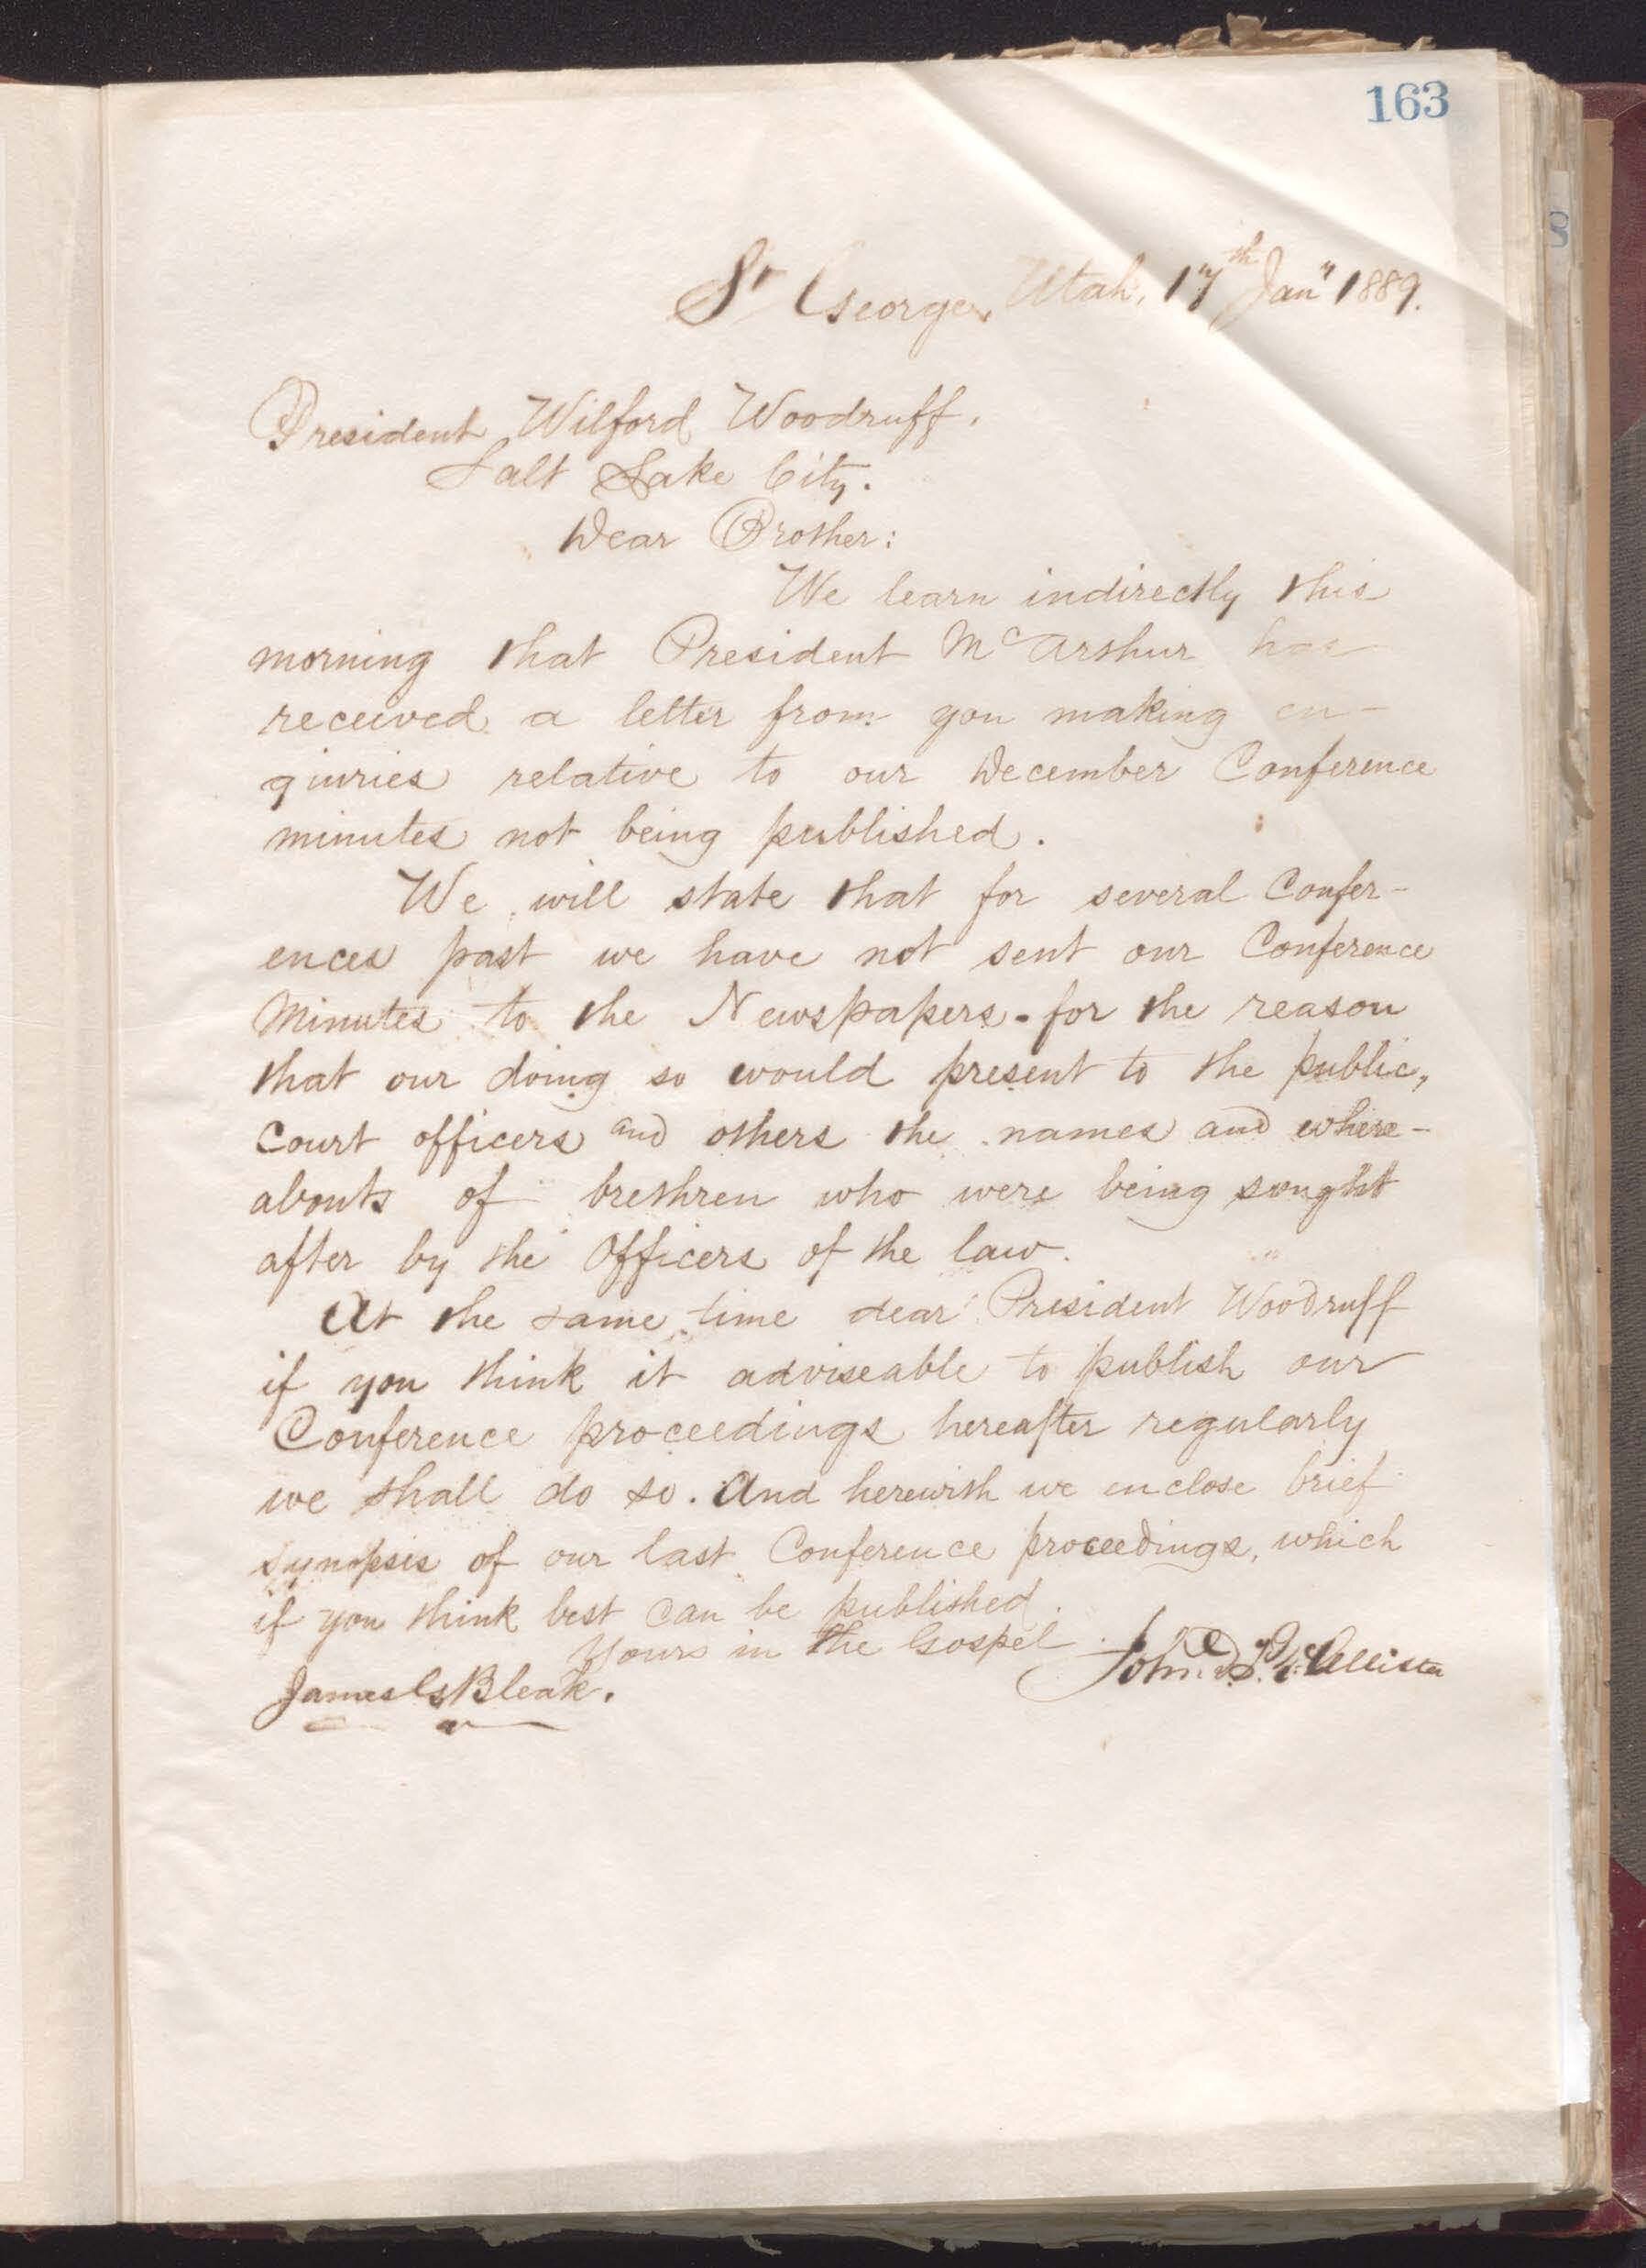 163
St George, Utah, 17th Jany 1889.
President Wilford Woodruff.
Salt Lake City.
Dear Brother:
We learn indirectly this
morning that President McArthur has
received a letter from you making en-
quiries relative to our December Conference
minutes not being published.
We will state that for several Confer-
ences past we have not sent our Conference
Minutes to the Newspapers - for the reason
that our doing so would present to the public,
court officers and others the names and where-
abouts of brethren who were being sought
after by the Officers of the law.
At the same time dear President Woodruff
if you think it adviseable to publish our
Conference proceedings hereafter regularly
we shall do so. And herewith we enclose brief
synopsis of our last Conference proceedings, which
if you think best can be published.
Yours in the Gospel
John D. T. McAllister
James G. Bleak.